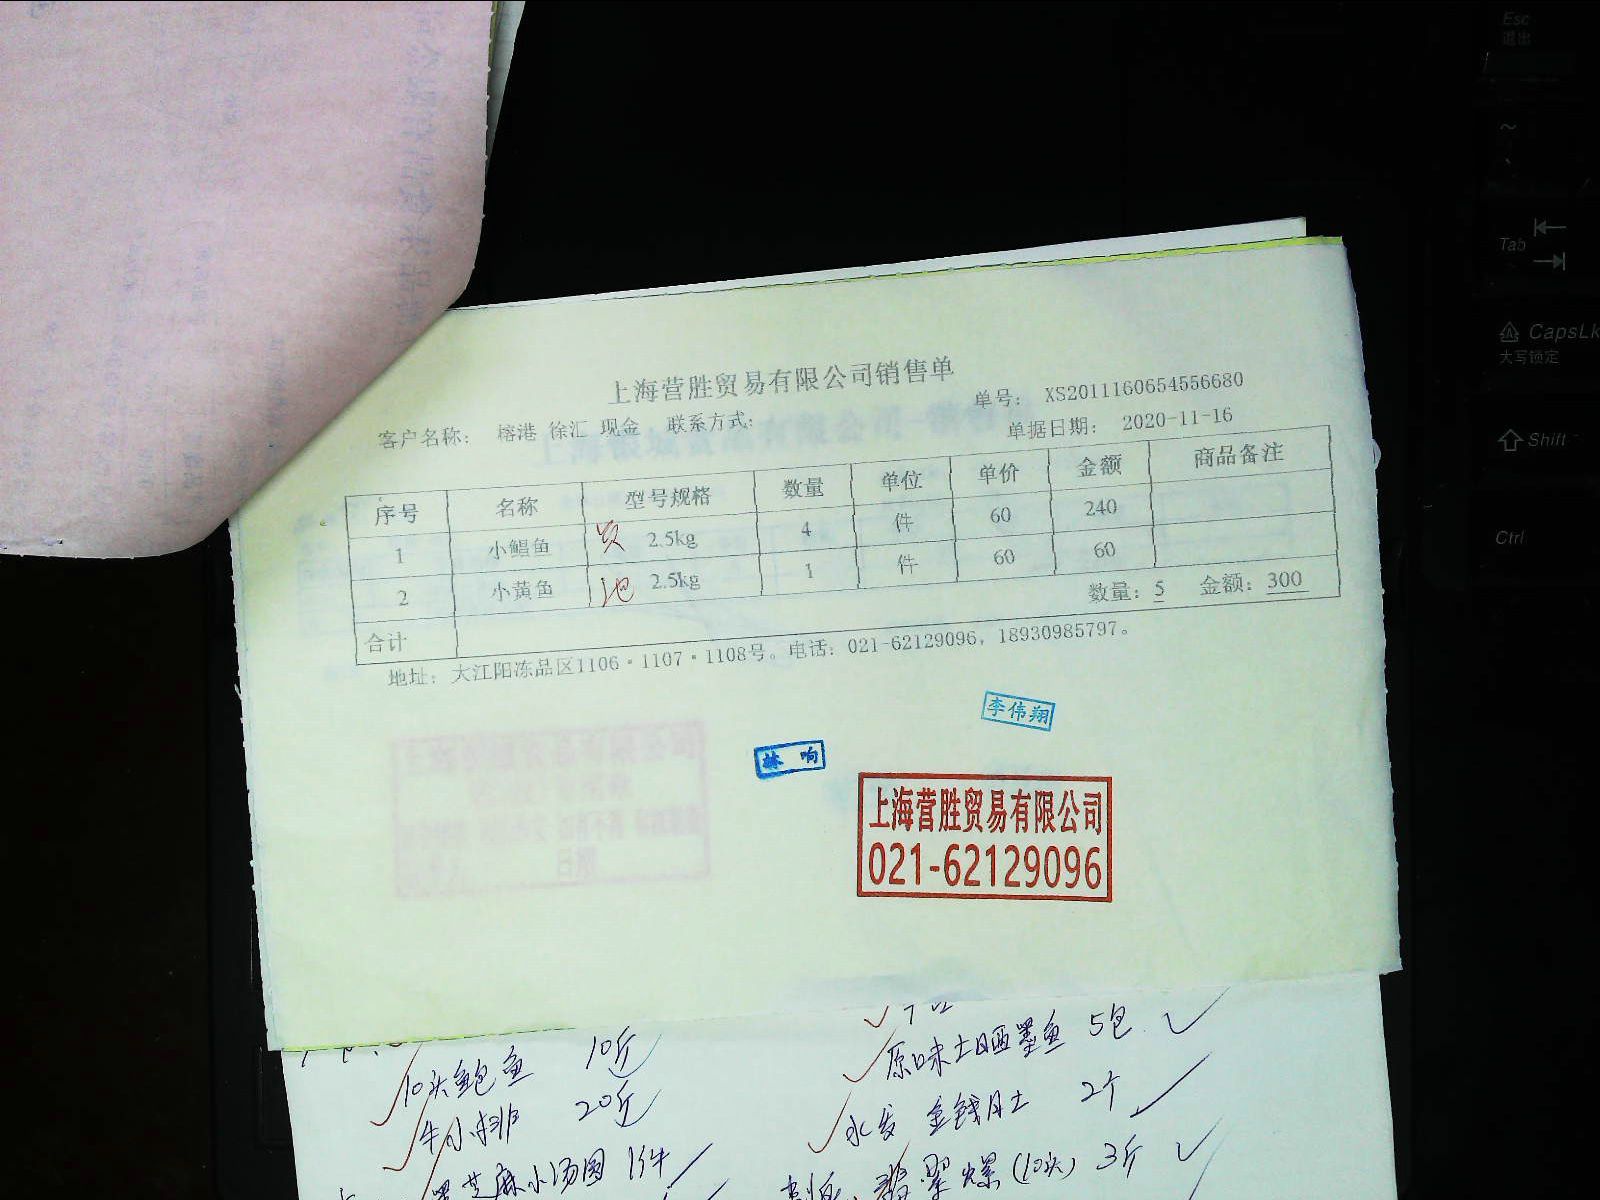 Esc
退出
~
Tab
CapsLk
大写锁定
Shift
Ctrl
上海营胜贸易有限公司销售单
单号： XS2011160654556680
客户名称： 榕港 徐汇 现金 联系方式：
单据日期： 2020-11-16
序号 名称 型号规格 数量 单位 单价 金额 商品备注
1 小鲳鱼 2.5kg 4 件 60 240
2 小黄鱼 2.5kg 1 件 60 60
合计 数量：5 金额：300
地址：大江阳冻品区1106·1107·1108号。电话：021-62129096，18930985797。
李伟翔
林 响
上海营胜贸易有限公司
021-62129096
10头鲍鱼 10斤
牛小排 20斤
黑芝麻小汤圆 1件
原味土晒墨鱼 5包
水发 金钱肚 2个
翡翠螺(10头) 3斤